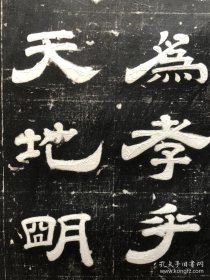 為孝乎
天地明
孔夫子旧书网